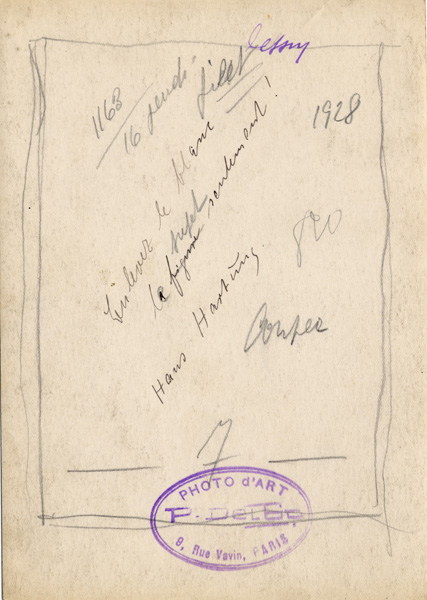 1163
16
filet
1928
Enlever le blanc
le sujet
figure seulement!
Hans Hartung.
820
Couper
7
PHOTO d'ART
P. DELBO
9, Rue Vavin, PARIS